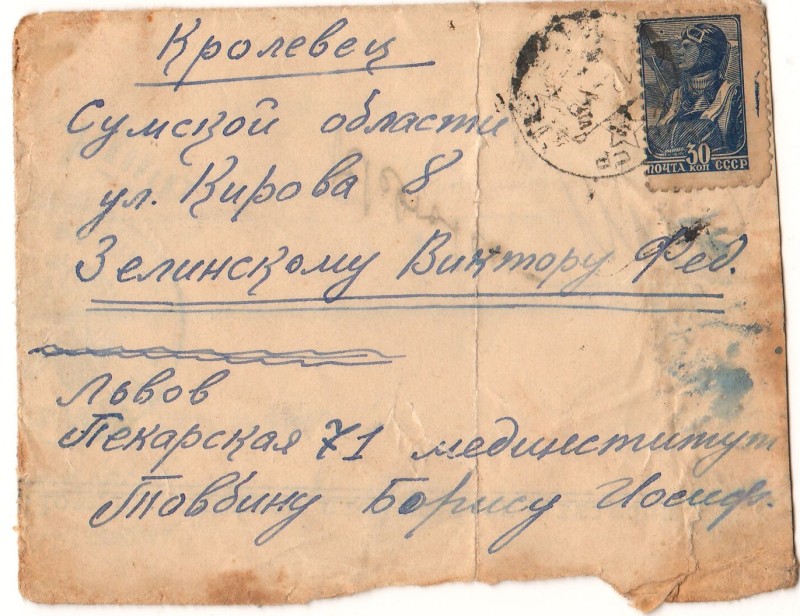 Кролевец
Сумской области
ул. Кирова 8
Зелинскому Виктору Фед.
Львов
Пекарская 71 мединститут
Товбину Борису Иосиф.
30
ПОЧТА КОП СССР